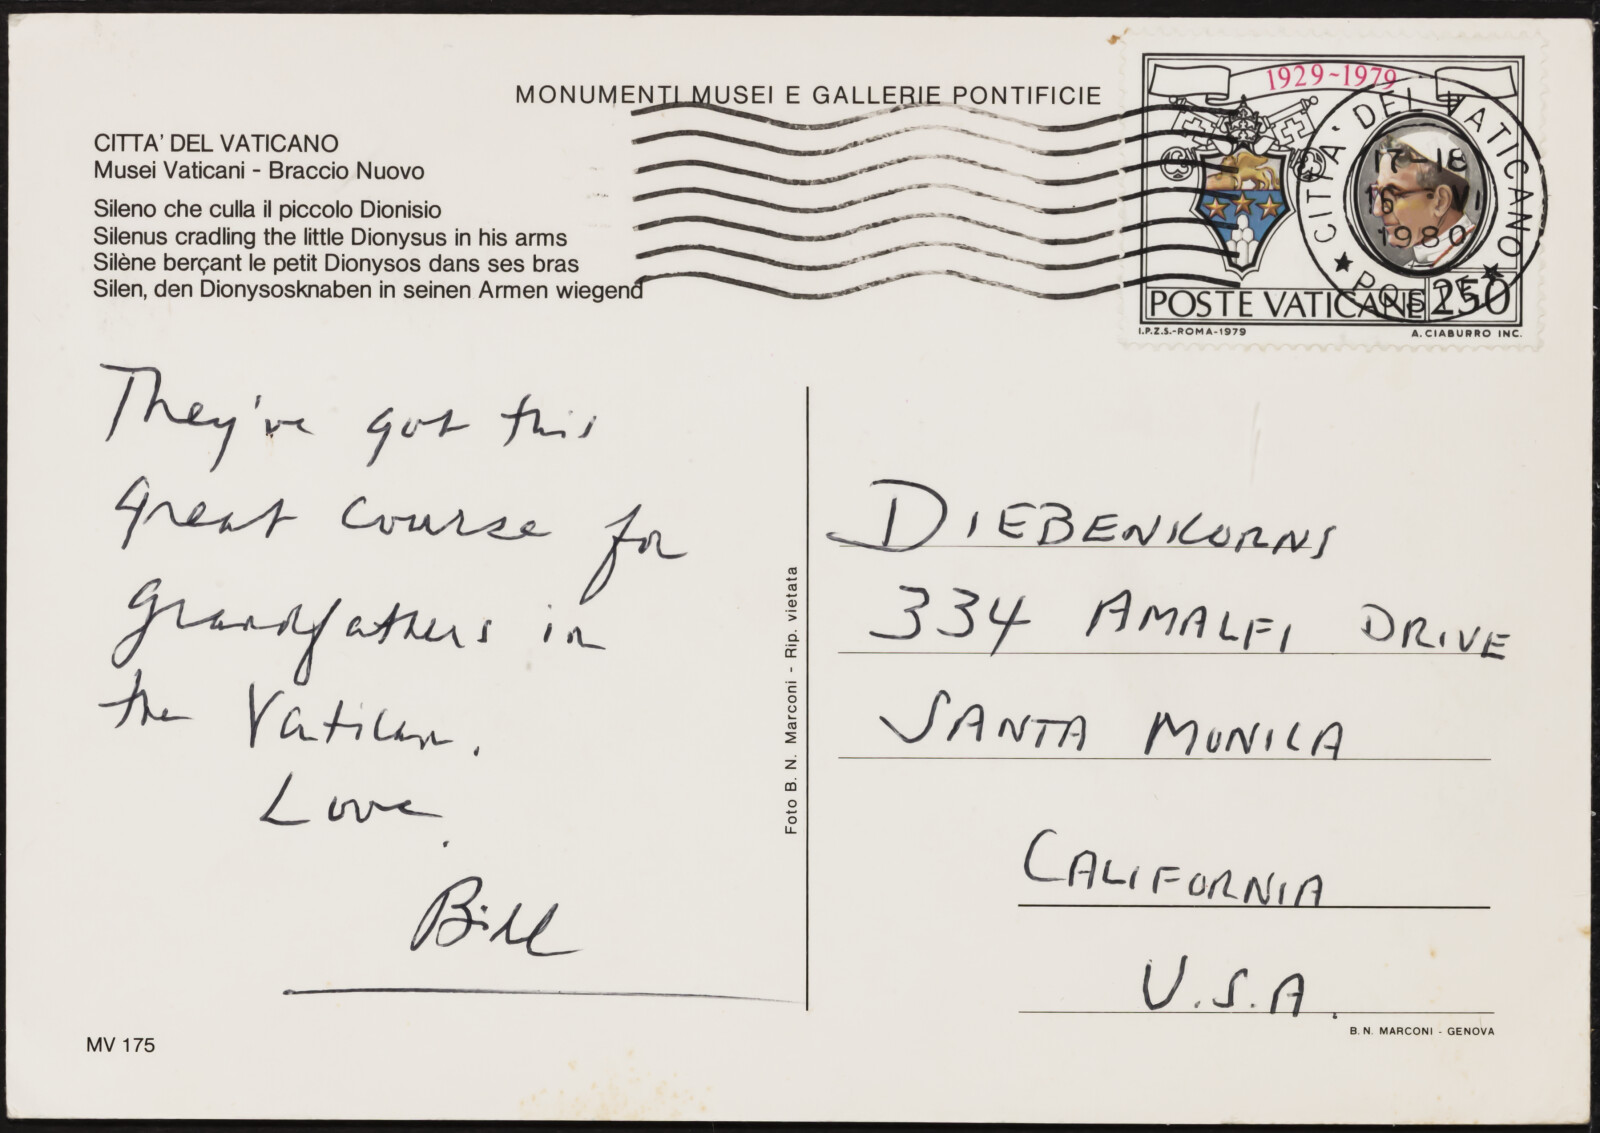 MONUMENTI MUSEI E GALLERIE PONTIFICIE
CITTA' DEL VATICANO
Musei Vaticani - Braccio Nuovo
Sileno che culla il piccolo Dionisio
Silenus cradling the little Dionysus in his arms
Silène berçant le petit Dionysos dans ses bras
Silen, den Dionysosknaben in seinen Armen wiegend
1929-1979
POSTE VATICANE 250
I.P.Z.S.-ROMA-1979
A. CIABURRO INC.
CITTA' DEL VATICANO
17-18
16 VI
1980
POSTE
They've got this
great course for
grandfathers in
the Vatican.
Love
Bill
Foto B. N. Marconi - Rip. vietata
DIEBENKORNS
334 AMALFI DRIVE
SANTA MONICA
CALIFORNIA
U.S.A.
B. N. MARCONI - GENOVA
MV 175